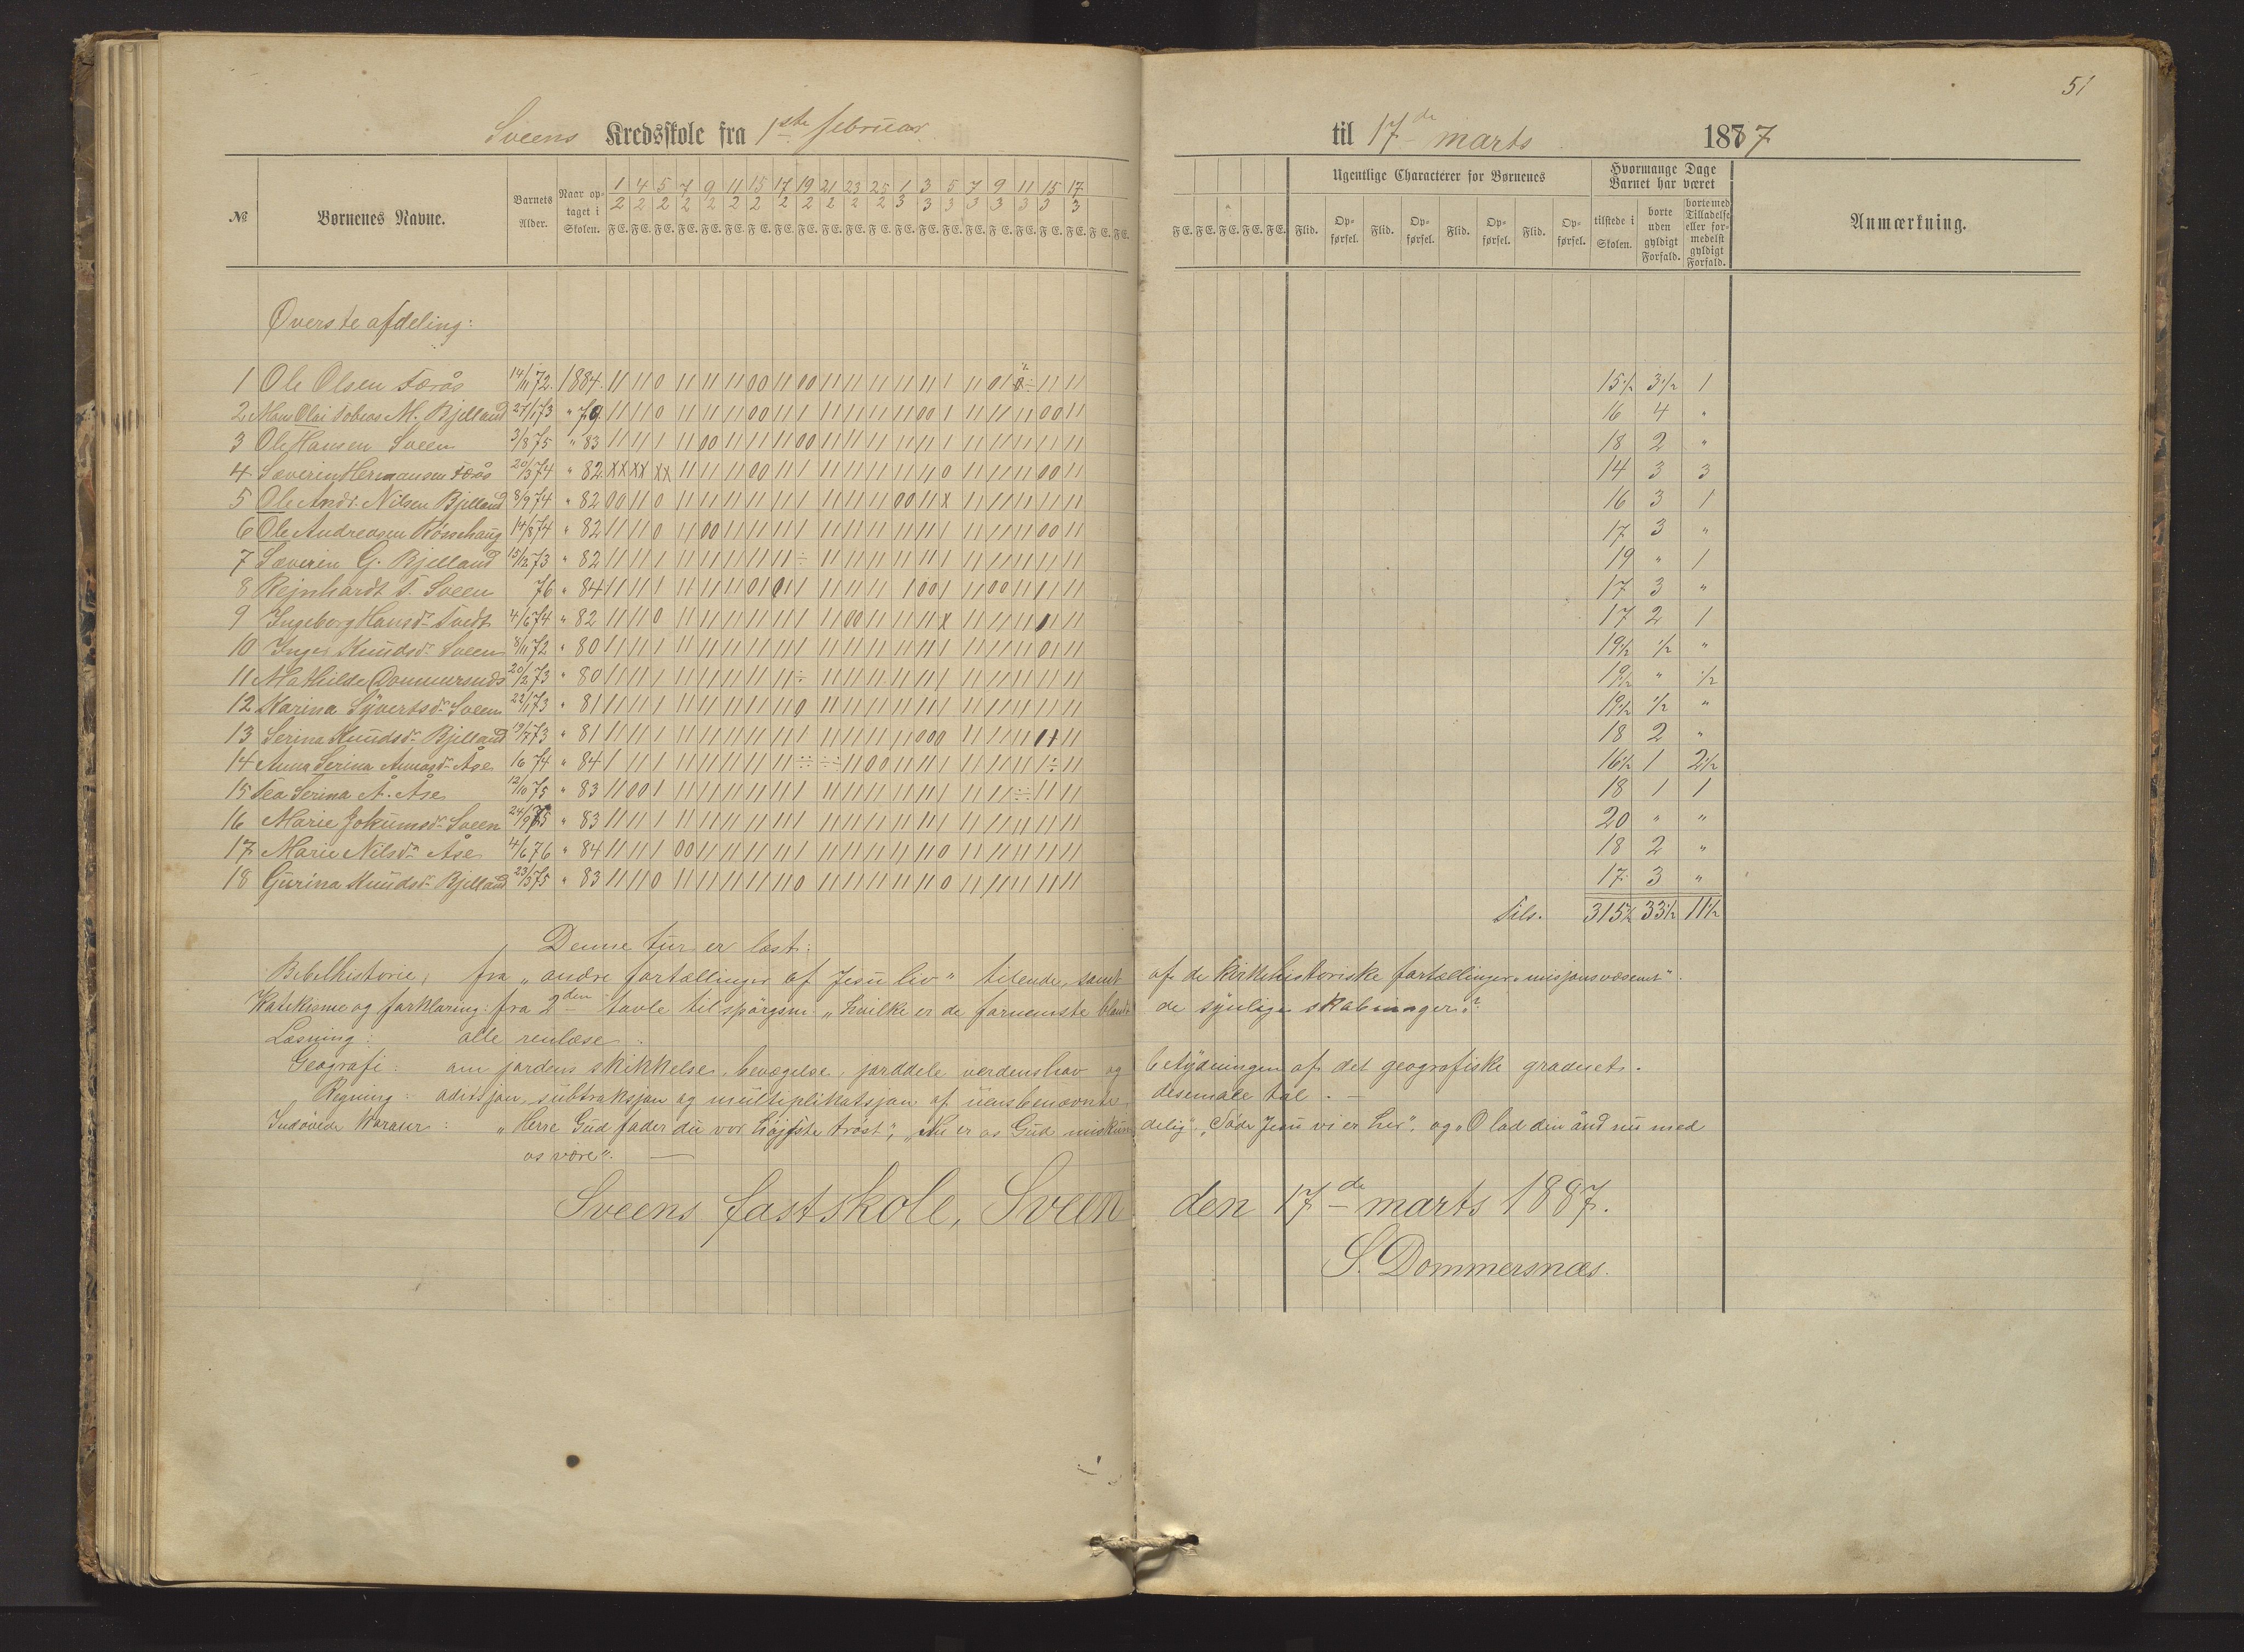 51
Sveens Kredsskole fra 1ste februar til 17de marts 1887
№ Børnenes Navne. Barnets Alder. Naar optaget i Skolen. 1/2 4/2 5/2 7/2 9/2 11/2 15/2 17/2 19/2 21/2 23/2 25/2 1/3 3/3 5/3 7/3 9/3 11/3 15/3 17/3 Ugentlige Characterer for Børnenes Hvormange Dage Barnet har været Anmærkning.
F. E. Flid. Opførsel. Flid. Opførsel. Flid. Opførsel. Flid. Opførsel. tilstede i Skolen. borte uden gyldigt Forfald. borte med Tilladelse eller formedelst gyldigt Forfald.
Øverste afdeling:
1 Ole Olsen Færås 14/11 72. 1884. 15 1/2 3 1/2 1
2 Mons Olai Tobias M. Bjelland 27/1 73 " 79 16 4 "
3 Ole Hansen Sveen 3/8 75 " 83 18 2 "
4 Severin Hermansen Færås 20/3 74 " 82 14 3 3
5 Ole Andr. Nilsen Bjelland 8/9 74 " 82 16 3 1
6 Ole Andreasen Røssehaug 14/8 74 " 82 17 3 "
7 Severin G. Bjelland 15/12 73 " 82 19 " 1
8 Rejnhardt T. Sveen 76 " 84 17 3 "
9 Ingeborg Hansdr. Tvedt 4/6 74 " 82 17 2 1
10 Inger Knudsdr. Sveen 8/11 72 " 80 19 1/2 1/2 "
11 Mathilde Dommersnæs 20/2 73 " 80 19 1/2 " 1/2
12 Karina Syvertsdr. Sveen 22/1 73 " 81 19 1/2 1/2 "
13 Serina Knudsdr. Bjelland 19/7 73 " 81 18 2 "
14 Anna Serina Amosdr. Åse 16 74 " 84 16 1/2 1 2 1/2
15 Tea Serina A. Åse 12/10 75 " 83 18 1 1
16 Marie Jokumsdr. Sveen 24/9 75 " 83 20 " "
17 Marie Nilsdr. Åse 4/6 76 " 84 18 2 "
18 Gurina Knudsdr. Bjelland 23/3 75 " 83 17 3 "
Tils. 315 1/2 33 1/2 11 1/2
Denne tur er læst:
Bibelhistorie, fra "andre fortællinger af Jesu liv" tilende, samt af de kirkehistoriske fortællinger "misjonsvæsenet".
Katekisme og forklaring: fra 2den tavle til spørgsm. "hvilke er de fornemste blandt de synlige skabninger?"
Læsning: alle renlæse.
Geografi: om jordens skikkelse, bevægelse, jorddele verdenshav og betydningen af det geografiske gradnet.
Regning: aditsjon, subtraksjon og multiplikatsjon af uensbenævnte desemale tal. —
Indøvede koraler: "Herre Gud fader du vor højeste trøst", "Nu er os Gud miskundelig", "Søde Jesu vi er her", og "O lad din ånd nu med
os være". —
Sveens fastskole, Sveen den 17de marts 1887.
S. Dommersnæs.